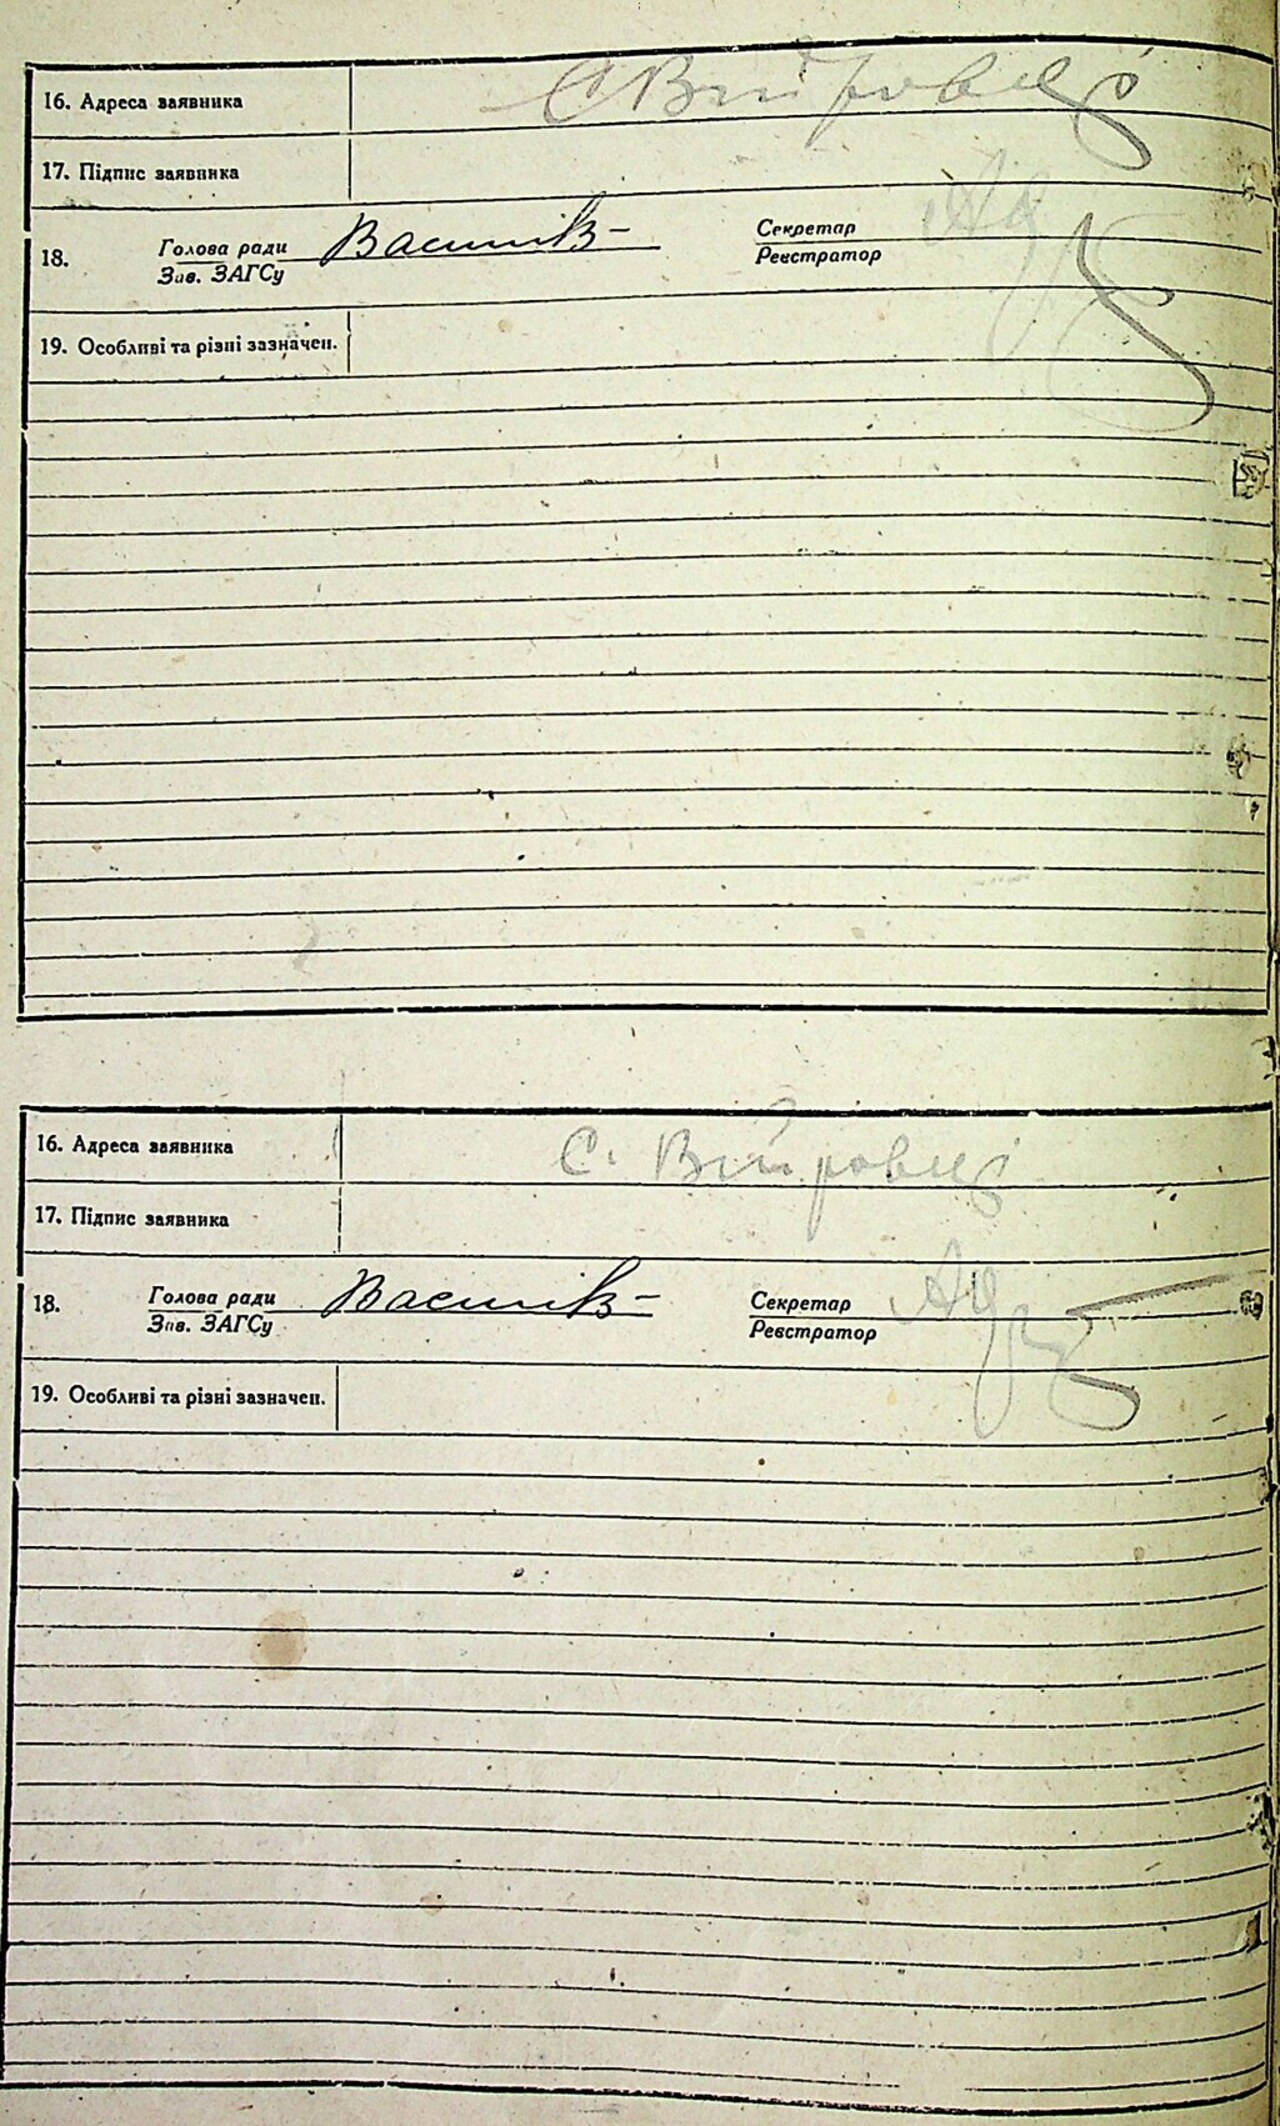 16. Адреса заявника С Війтровці
17. Підпис заявника
18. Голова ради Василів Секретар
Зав. ЗАГСу Реєстратор
19. Особливі та різні зазначен.
16. Адреса заявника С. Війтровці
17. Підпис заявника
18. Голова ради Василів Секретар
Зав. ЗАГСу Реєстратор
19. Особливі та різні зазначен.